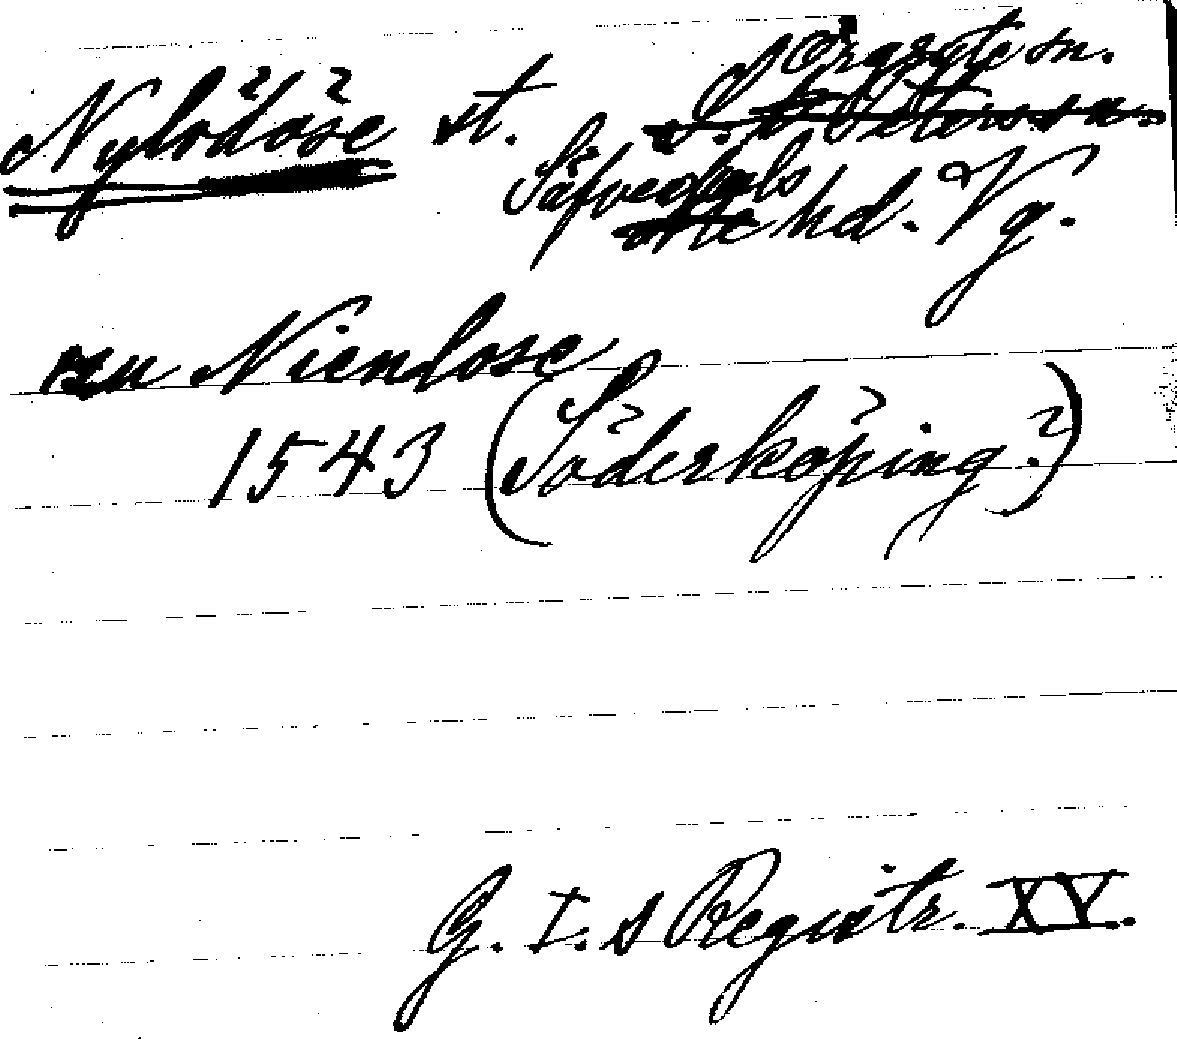 Nylödöse st. Örgryte sn.
Säfvedals hd. Vg.
zu Nienlose
1543 (Söderköping?)
G. I:s Registr. XV.